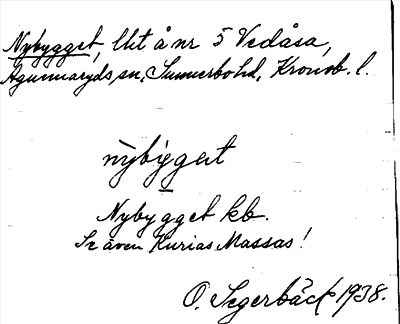 Nybygget, lht å nr 5 Vedåsa,
Agunnaryds sn, Sunnerbo hd, Kronob. l.
nỳbýgget
Nybygget kb.
Se även Kurias, Massas!
O. Segerbäck 1938.